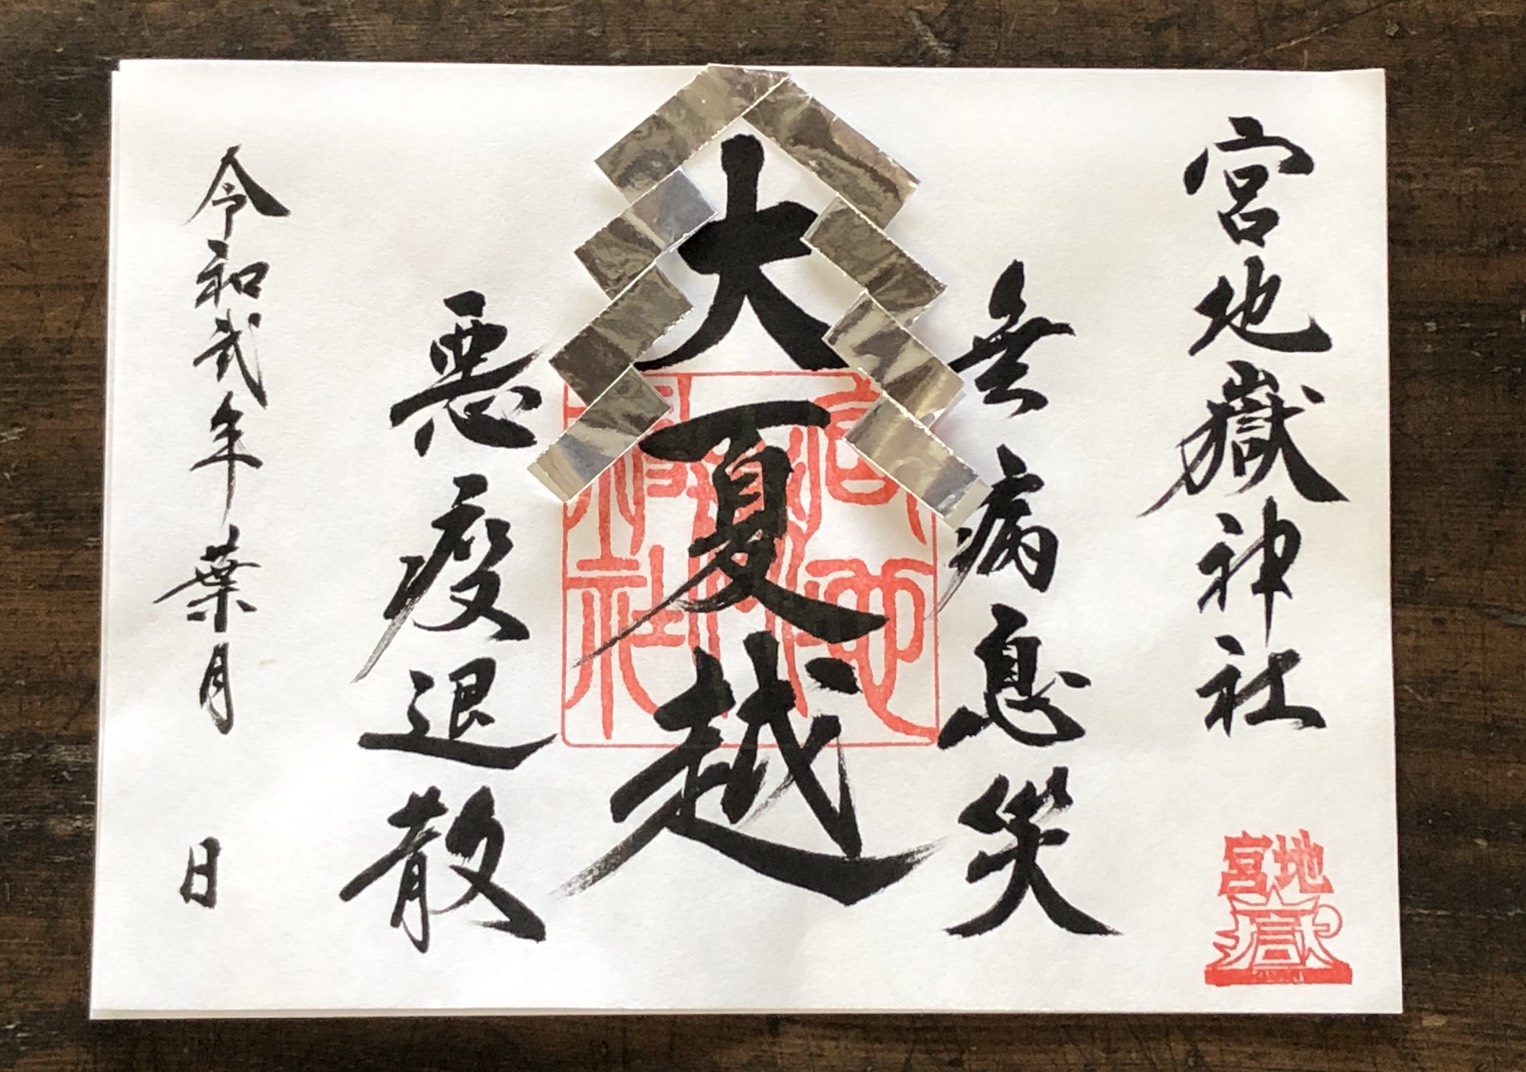 宮地嶽神社
無病息災
大夏越
悪疫退散
令和弐年葉月 日
宮地
嶽